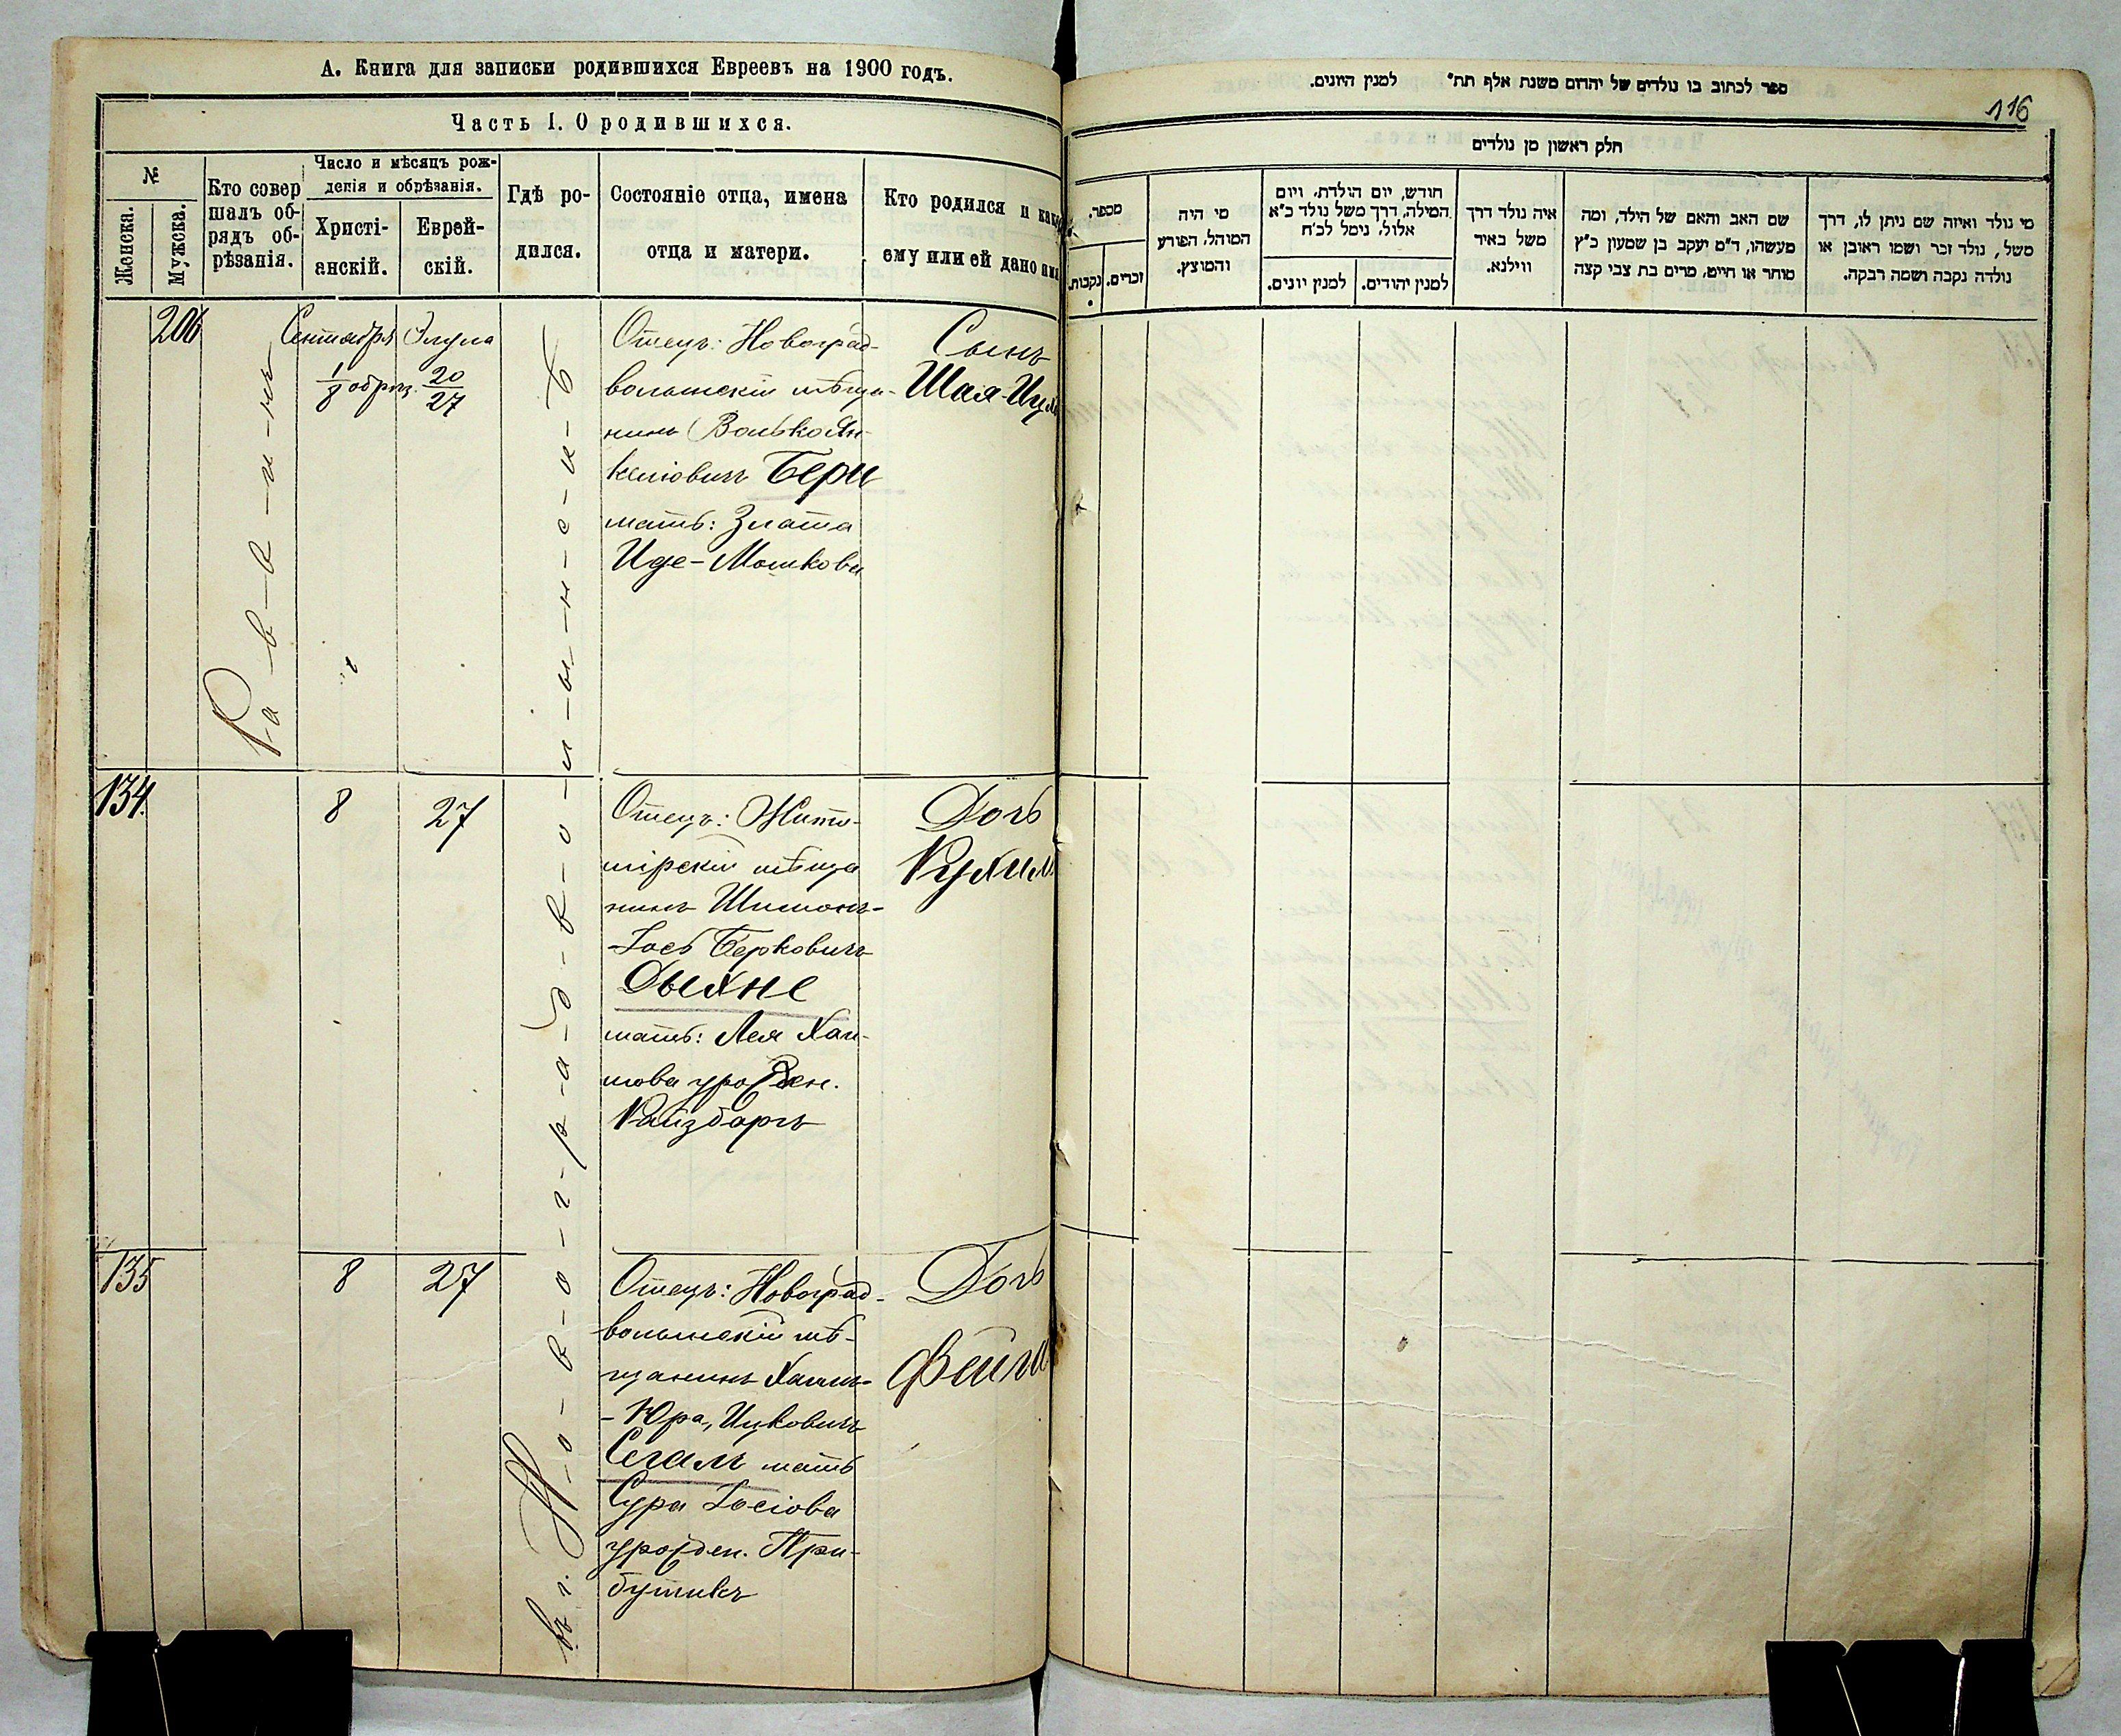 А. Книга для записки родившихся Евреевъ на 1900 годъ.
Часть I. О родившихся.
№
Женска.
Мужска.
Кто совер
шалъ об-
рядъ об-
рѣзанія.
Число и мѣсяцъ рож-
денія и обрѣзанія.
Христі-
анскій.
Еврей-
скій.
Гдѣ ро-
дился.
Состояніе отца, имена
отца и матери.
Кто родился и како
ему или ей дано им
206
Раввинъ
Сентября
1
8 обрѣз.
Элула
20
27
въ г. Новоградволынскѣ
Отецъ: Новоград-
волынскій мѣща-
нинъ Волько Ян-
келіовичъ Берн
мать: Злата
Иде-Мошкова
Сынъ
Шая-Иц
134.
8
27
Отецъ: Жито-
мірскій мѣща
нинъ Шимонъ-
-Іось Берковичъ
Дыхне
мать: Лея Хаи-
мова урожден.
Вайзбаргъ
Дочь
Рухил
135
8
27
Отецъ: Новоград-
волынскій мѣ-
щанинъ Хаимъ-
-Юра, Ицковичъ
Сегалъ мать
Сура Іосіова
урожден. При-
бутикъ
Дочь
Фейга
ספר לכתוב בו נולדים של יהדום משנת אלף תת״ למנין היונים.
116
חלק ראשון מן נולדים
מספר.
נקבות.
זכרים.
מי היה
המוהל, הפורע
והמוצץ.
חודש, יום הולדת, ויום
המילה, דרך משל נולד כ״א
אלול, נימל לכ״ח
למנין יונים.
למנין יהודים.
איה נולד דרך
משל באיר
ווילנא.
שם האב והאם של הילד, ומה
מעשהו, ד״מ יעקב בן שמעון כ״ץ
סוחר או חייט, מרים בת צבי קצה
מי נולד ואיזה שם ניתן לו, דרך
משל, נולד זכר ושמו ראובן או
נולדה נקבה ושמה רבקה.